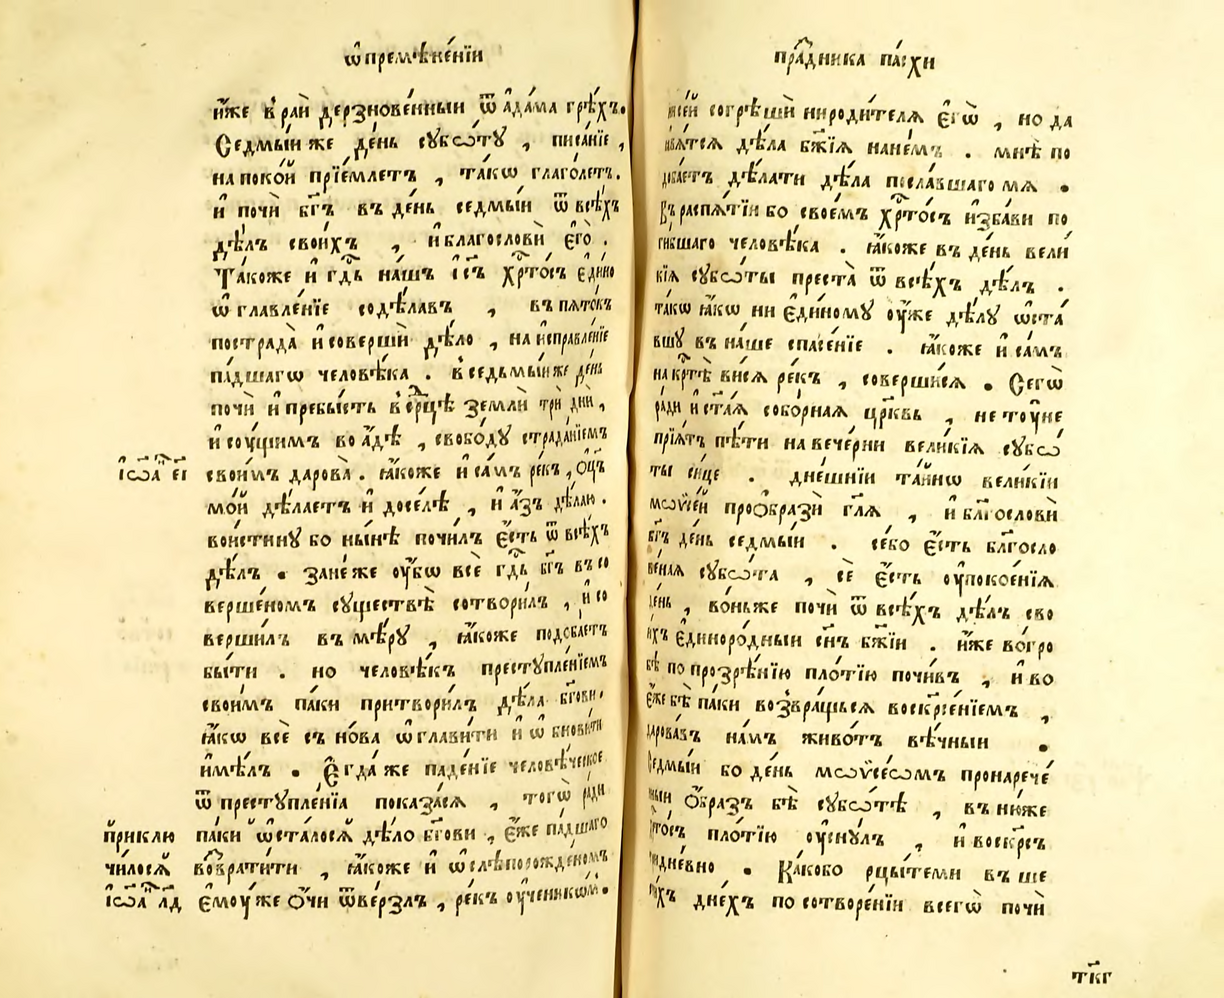 ѡ҆ премѣне́нїи
и҆́же в̾ рай дерзнове́нныи ѿ а҆да́ма грѣ́хъ.
Седмы́и же де́нь сꙋбѡ́тꙋ , писа́нїе ,
на поко́й прїе́млетъ , та́кѡ глаго́летъ.
и҆ почѝ бг҃ъ въ де́нь седмы́и ѿ всѣ́хъ
дѣ́лъ свои́хъ , и҆ благословѝ є҆го̀ .
Та́коже и҆ гдⷭ҇ь на́шъ і҆с҃ъ хрⷭ҇то́съ є҆ди́но
ѡ҆главле́нїе содѣ́лавъ , въ пято́къ
пострада̀ и҆ соверши́ дѣ́ло , на и҆справле́нїе
па́дшагѡ человѣ́ка . в̾ седьмы́и же де́нь
почѝ и҆ пребы́сть в̾ срⷣцѣ землѝ трѝ дни̑ ,
и҆ сꙋ́щимъ во а҆́дѣ , свобо́дꙋ страда́нїемъ
свои́мъ дарова̀ . ꙗ҆́коже и҆ са́мъ ре́къ , ѻ҆ц҃ъ
і҆ѡаⷩ҇ є҃і
мо́й дѣ́лаетъ и҆ досе́лѣ , и҆ а҆́зъ дѣ́лаю .
вои́стинꙋ бо ны́нѣ почи́лъ є҆́сть ѿ всѣ́хъ
дѣ́лъ . зане́же ᲂу҆́бѡ всѐ гдⷭ҇ь бг҃ъ въ со
верше́номъ сꙋществѣ̀ сотвори́лъ , и҆ со
верши́лъ въ мѣ́рꙋ , ꙗ҆́коже подоба́етъ
бы́ти . но человѣ́къ престꙋпле́нїемъ
свои́мъ па́ки притвори́лъ дѣ́ла бг҃ови .
ꙗ҆́кѡ всѐ съ но́ва ѡ҆глави́ти и҆ ѡ҆бнови́ти
и҆мѣ́лъ . Є҆гда́ же паде́нїе человѣ́ческое
ѿ престꙋпле́нїѧ показа́сѧ , тогѡ̀ ра́ди
па́ки ѡ҆ста́лосѧ дѣ́ло бг҃ови , є҆́же па́дшаго
приклю
возврати́ти , ꙗ҆́коже и҆ ѡ҆ слѣпорожде́номъ
чи́лосѧ
є҆моу́ же ѻ҆́чи ѿве́рзлъ , ре́къ ᲂу҆ченикѡ́мъ .
і҆ѡаⷩ҇ л҃д
пра́здника па́схи
ни се́й согрѣшѝ ни роди́телѧ є҆гѡ̀ , но да
ꙗ҆вѧ́тсѧ дѣ́ла бж҃їѧ на не́мъ . мнѣ̀ по
доба́етъ дѣ́лати дѣ́ла посла́вшаго мѧ .
Въ распѧ́тїи бо свое́мъ хрⷭ҇то́съ и҆зба́ви по
ги́бшаго человѣ́ка . ꙗ҆́коже въ де́нь вели́
кїѧ сꙋбѡ́ты преста̀ ѿ всѣ́хъ дѣ́лъ .
та́кѡ ꙗ҆́кѡ ни є҆ди́номꙋ ᲂу҆́же дѣ́лꙋ ѡ҆ста́
вшꙋ въ на́ше спасе́нїе . ꙗ҆́коже и҆ са́мъ
на крⷭ҇тѣ̀ висѧ̀ ре́къ , соверши́сѧ . Сегѡ̀
ра́ди и҆ ст҃а́ѧ собо́рнаѧ цр҃ковь , не то́ чїе
прїѧ́тъ пѣ́ти на вече́рни вели́кїѧ сꙋбѡ́
ты си́це . дне́шнїи та́йнѡ вели́кїи
мѡѷсе́й проѻбразѝ гл҃ѧ , и҆ бл҃гословѝ
бг҃ъ де́нь седмы́и . се́ бо є҆́сть бл҃госло
ве́наѧ сꙋбѡ́та , сѐ є҆́сть ᲂу҆покое́нїѧ
де́нь , во́ньже почѝ ѿ всѣ́хъ дѣ́лъ сво
и́хъ є҆диноро́дныи сн҃ъ бж҃їи . и҆́же во́ гро
бѣ по прозрѣ́нїю пло́тїю почи́въ , и҆ во
є҆́же бѣ̀ па́ки возвра́щьсѧ воскрⷭ҇е́нїемъ ,
дарова́въ на́мъ живо́тъ вѣ́чныи .
Седмы́и бо де́нь мѡѷсе́ѡмъ пронарече́
ныи ѻ҆́бразъ бѣ̀ сꙋбѡ́тѣ , въ ню́же
хрⷭ҇то́съ пло́тїю ᲂу҆снꙋ́лъ , и҆ воскр҃съ
тридне́вно . Ка́ко бо рцы́те ми въ ше
сти́хъ дне́хъ по сотворе́нїи всегѡ̀ почѝ
тк҃г